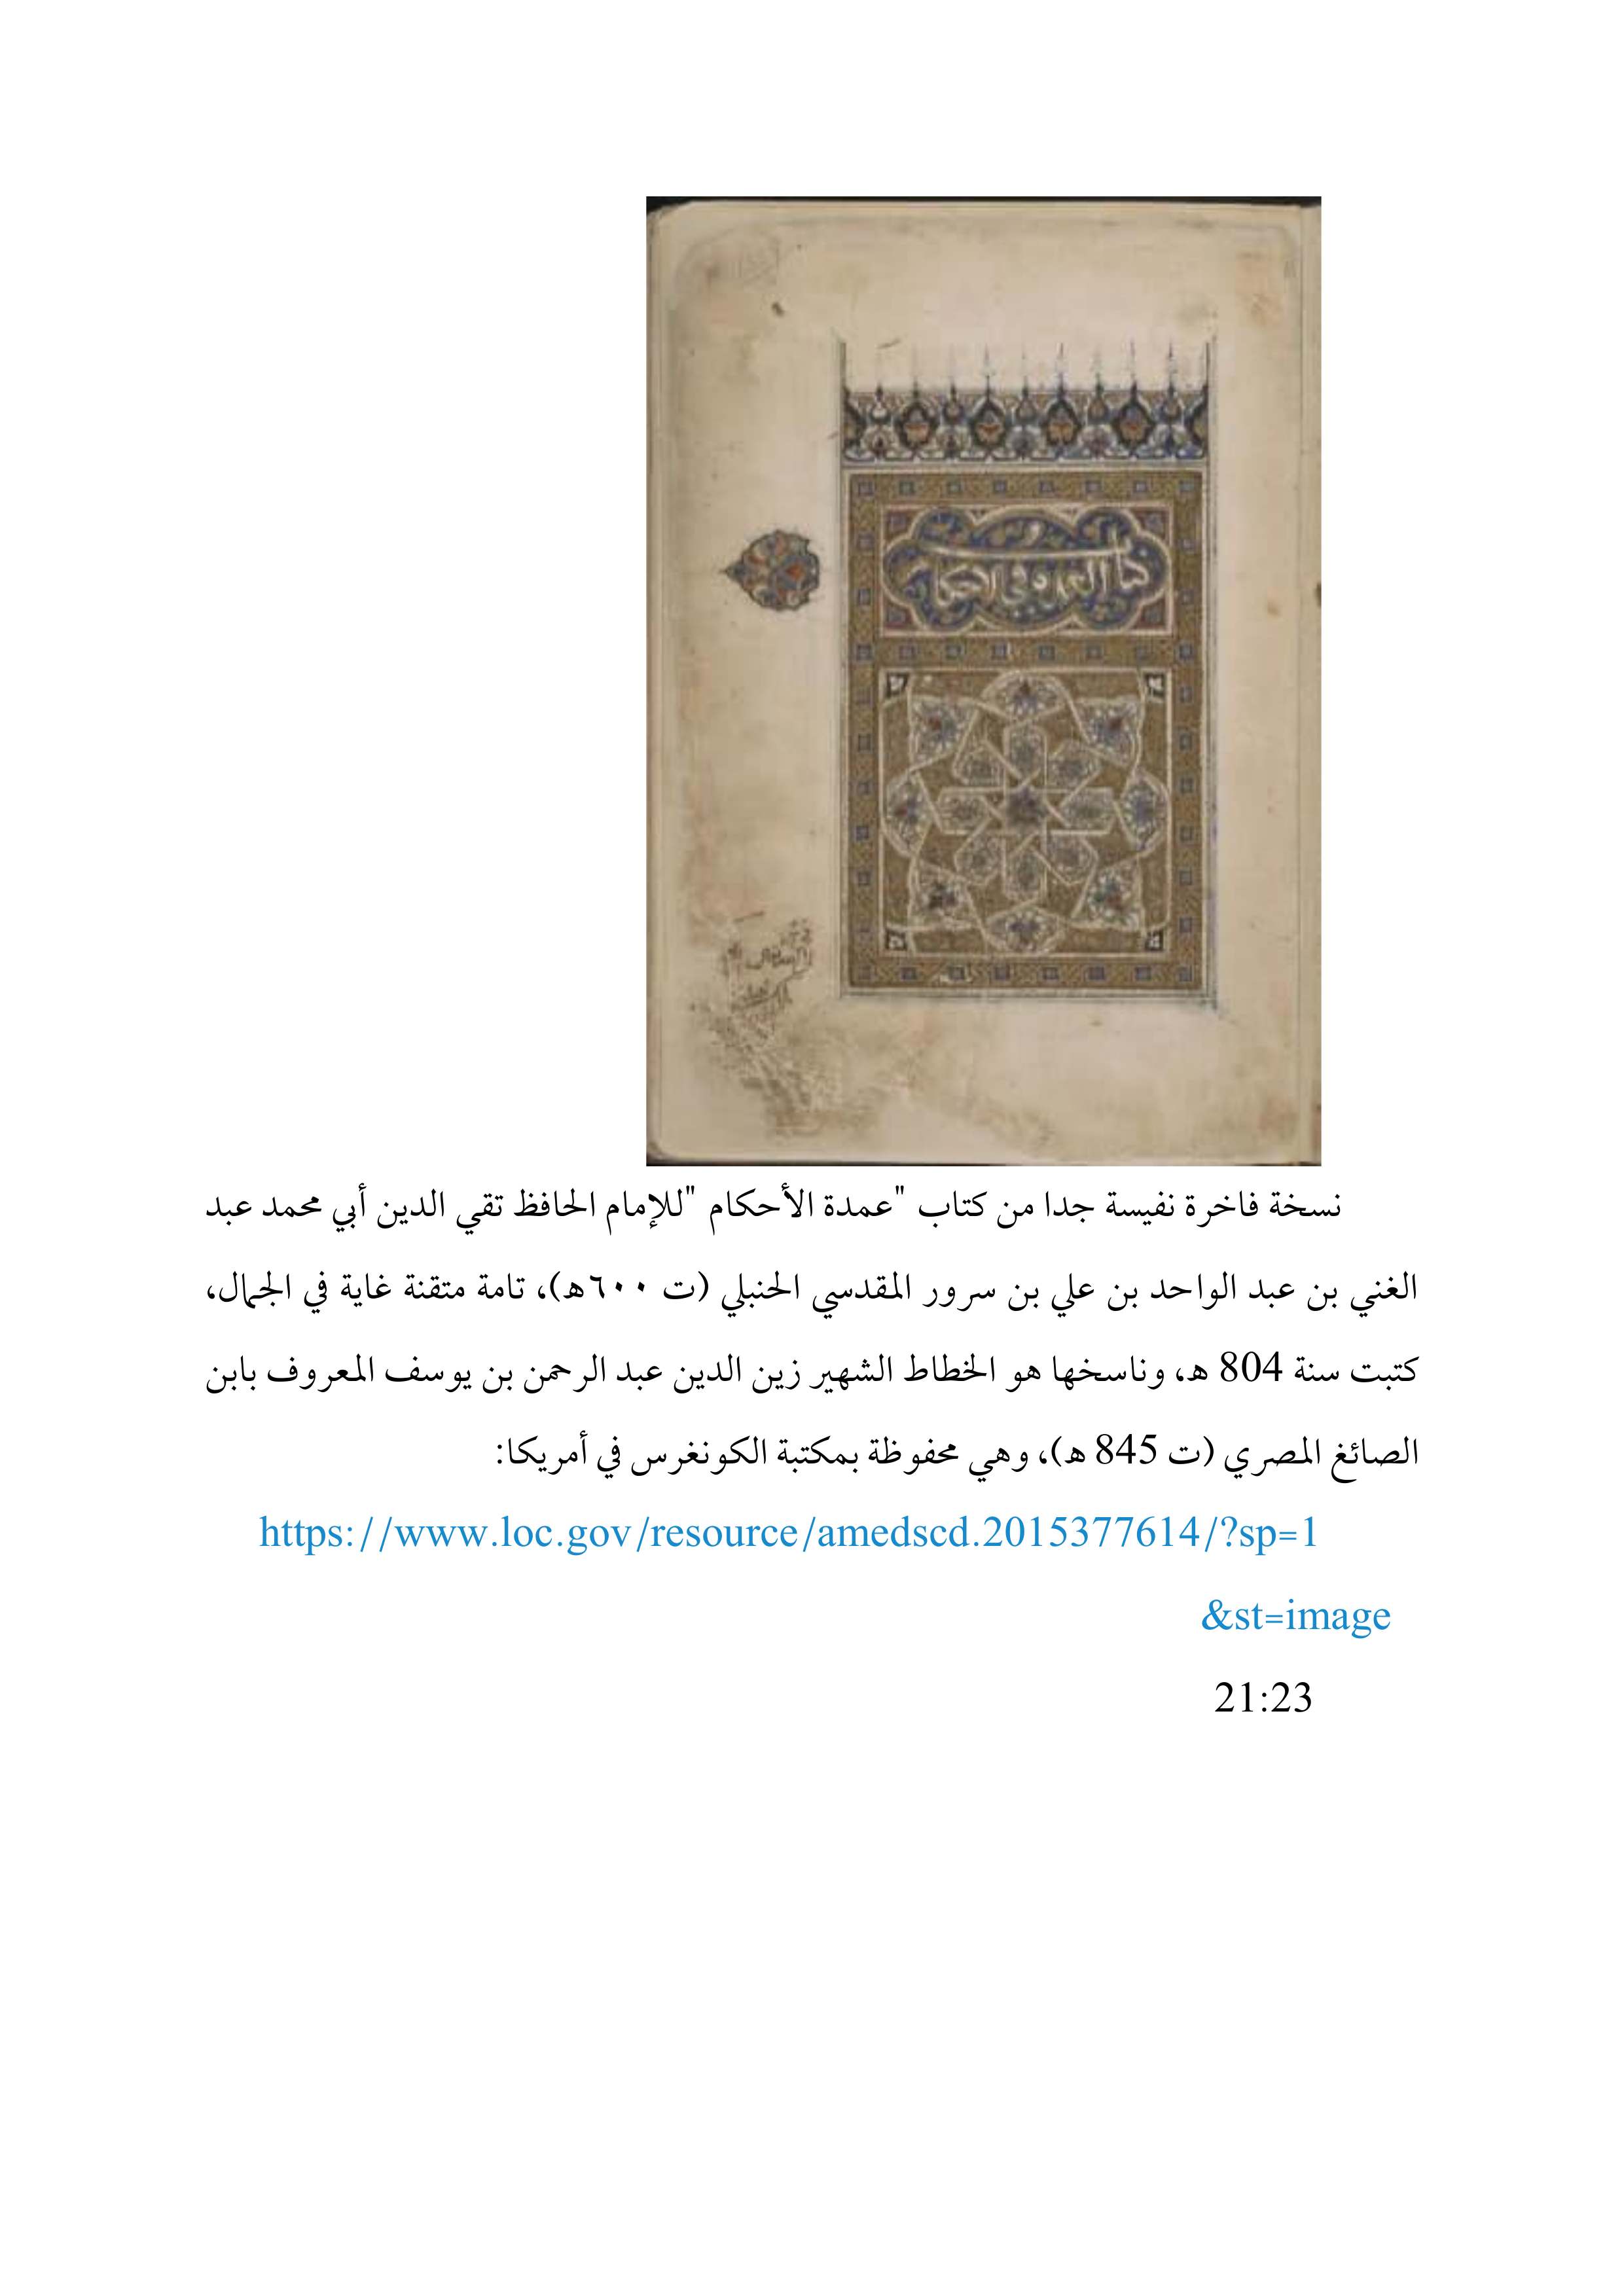 كتاب العمدة في الأحكام
نسخة فاخرة نفيسة جدا من كتاب "عمدة الأحكام "للإمام الحافظ تقي الدين أبي محمد عبد
الغني بن عبد الواحد بن علي بن سرور المقدسي الحنبلي (ت ٦٠٠ه)، تامة متقنة غاية في الجمال،
كتبت سنة 804 ه، وناسخها هو الخطاط الشهير زين الدين عبد الرحمن بن يوسف المعروف بابن
الصائغ المصري (ت 845 ه)، وهي محفوظة بمكتبة الكونغرس في أمريكا:
https://www.loc.gov/resource/amedscd.2015377614/?sp=1
&st=image
21:23